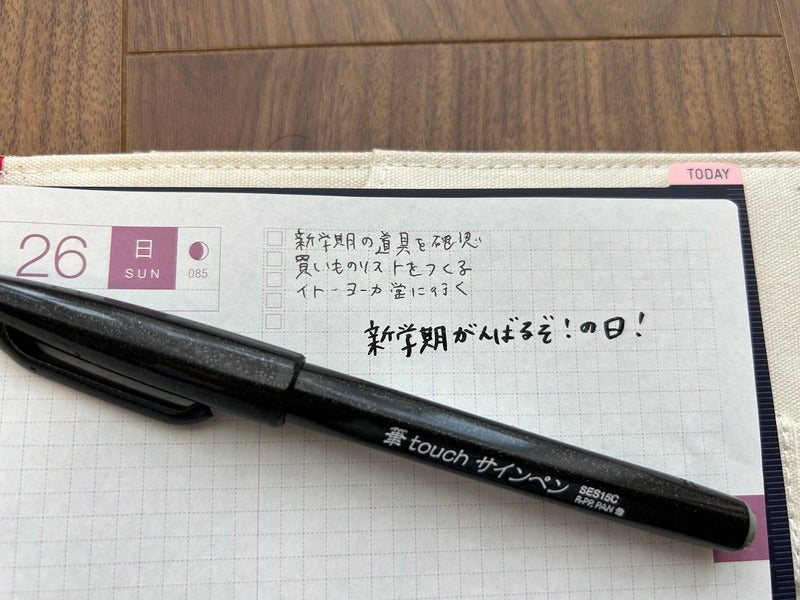 TODAY
26
日
SUN
085
新学期の道具を確認
買いものリストをつくる
イトーヨーカ堂に行く
新学期がんばるぞ!の日!
筆touch サインペン SES15C
R-PP, PAN